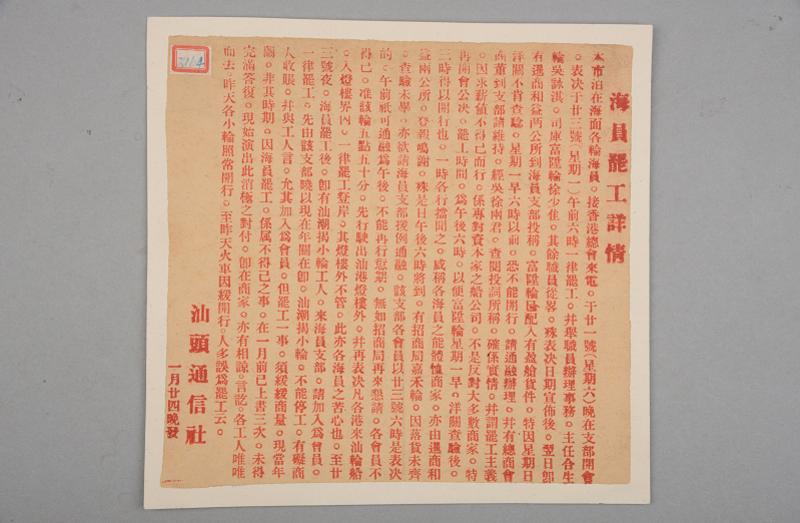 海員罷工詳情
本市泊在海面各輪海員。接香港總會來電。于廿一號(星期六)晚在支部開會
。表決于廿三號(星期一)午前六時一律罷工。幷舉職員辦理事務。主任合生
輪吳詠淇。司庫富陞輪徐少隹。其餘職員從畧。殊表决日期宣佈後。翌日卽
有運商和益两公所到海員支部投稱。富陞輪因配入有盈艙貨件。特因星期日
洋關不肯查騐。星期一早六時以前。恐不能開行。請通融辦理。幷有總商會
商董到支部請維持。經吳徐兩君。查閱投詞所稱。確係實情。幷謂罷工主義
。因求薪値不得已而行。係專對資本家之船公司。不是反對大多數商家。特
再開會公决。罷工時間。為午後六時。以便富陞輪星期一早。洋關查驗後。
三時得以開行也。一時各行擋聞之。咸稱各海員之能體恤商家。亦由運商和
益兩公所。登報鳴謝。殊是日午後六時將到。有招商局嘉禾輪。因落貨未齊
。查驗未畢。亦欲請海員支部援例通融。該支部各會員以廿三號六時是表决
的。午前祇可通融為午後。不能再行愆期。無如招商局再來懇請。各會員不
得已。准該輪五點五十分。先行駛出汕港燈樓外。幷再表决凡各港來汕輪船
。入燈樓界内。一律罷工登岸。其燈樓外不管。此亦各海員之苦心也。至廿
三號夜。海員罷工後。卽有汕潮揭小輪工人。來海員支部。請加入為會員。
一律罷工。先由該支部曉以現在年關在卽。汕潮揭小輪。不能停工。有礙商
人收賬。幷與工人言。允其加入為會員。但罷工一事。須緩緩商量。現當年
關。非其時期。因海員罷工。係属不得已之事。在一月前已上書三次。未得
完滿答復。現始演出此消極之對付。卽在商家。亦有相諒。言訖。各工人唯唯
而去。昨天各小輪照常開行。至昨天火車因緩開行。人多誤為罷工云。
汕頭通信社
一月廿四晚發